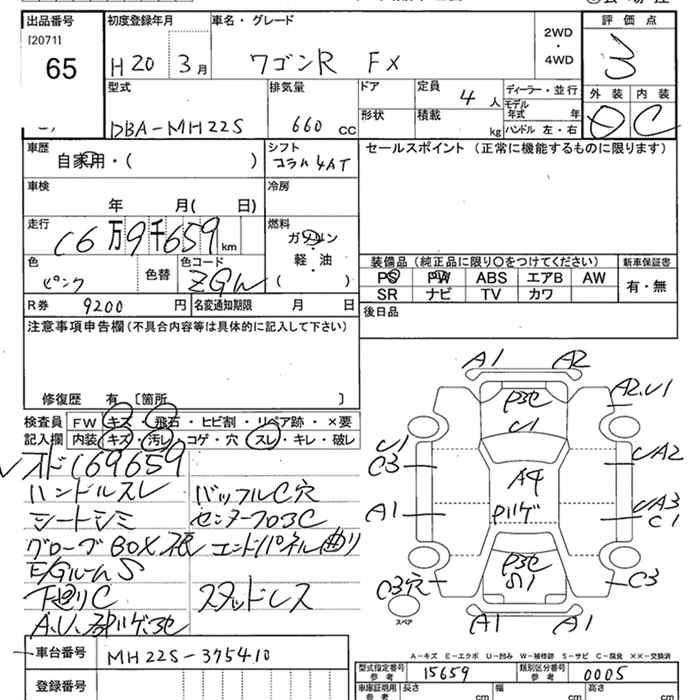 出品番号
[2071]
65
初度登録年月
H20 3月
車名・グレード
ワゴンR FX
2WD
・
4WD
評価点
3
外装 内装
D C
型式
DBA-MH22S
排気量
660 cc
ドア
形状
定員
4 人
積載
kg
ディーラー・並行
モデル年式 年
ハンドル 左・右
車歴
自家用・( )
シフト
コラム4AT
セールスポイント (正常に機能するものに限ります)
車検
年 月( 日)
冷房
走行
16万9千659 km
燃料
ガソリン
・
軽・油
( )
色
ピンク
色替
色コード
ZGW
装備品 (純正品に限り〇をつけてください)
PS PW ABS エアB AW
SR ナビ TV カワ
新車保証書
有・無
R券 9200 円
名変通知期限 月 日
後日品
注意事項申告欄 (不具合内容等は具体的に記入して下さい)
修復歴 有〔箇所 〕
検査員
記入欄
FW キズ・飛石・ヒビ割・リペア跡・×要
内装 キズ・汚レ・コゲ・穴・スレ・キレ・破レ
オド169659
ハンドルスレ
バッフルC穴
シートシミ
センターフロ3C
グローブBOX
エンドパネル曲り
E/GルームS
下回りC
スタッドレス
A1 A2
A2,U1
U1
U1
C3
UA2
A4
A1
UA3
C1
C3穴
C3
A1 A1
スペア
A-キズ E-エクボ U-凹み W-補修跡 S-サビ C-腐食 XX-交換済
車台番号
MH22S-375410
型式指定番号
参考
15659
類別区分番号
参考
0005
登録番号
車庫証明用
参考
長さ cm
幅 cm
高さ cm